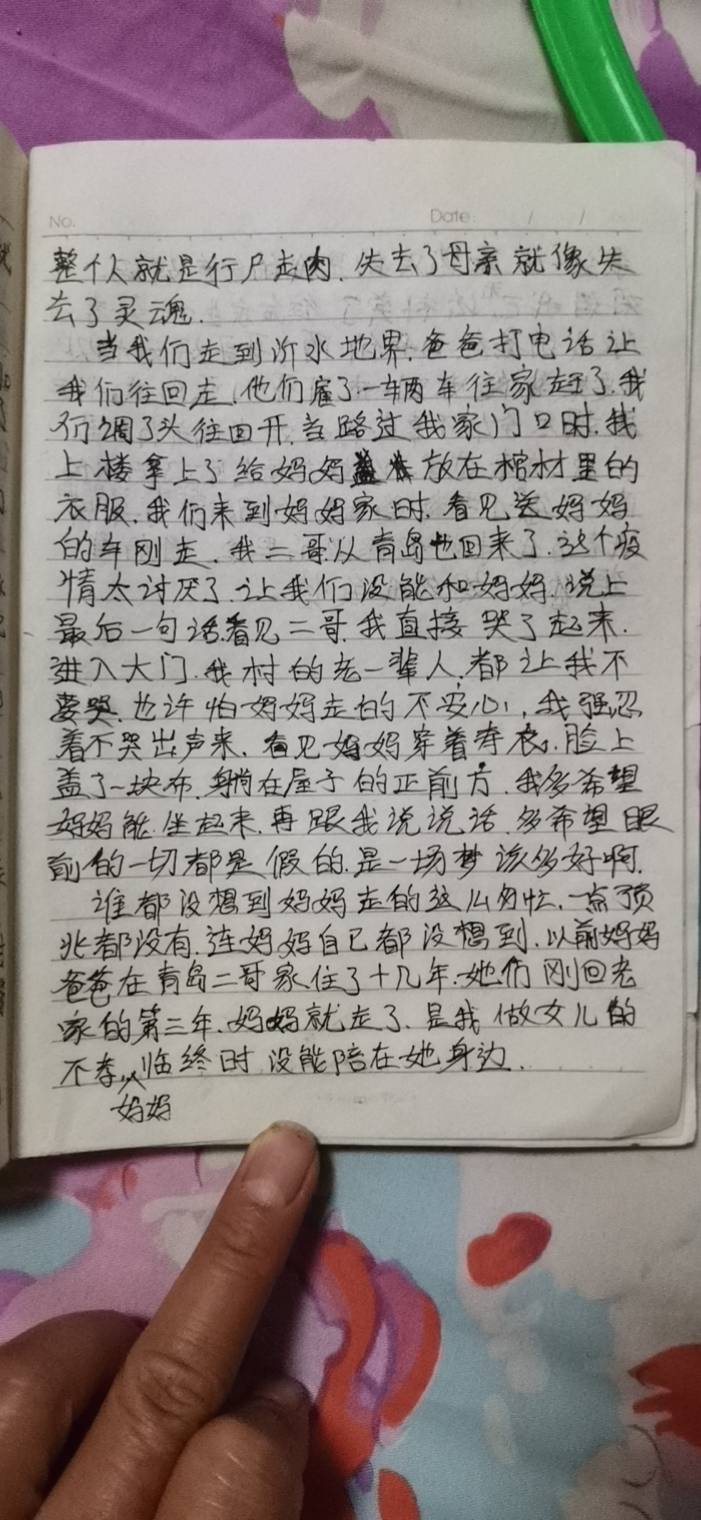 No.
Date: / /
整个人就是行尸走肉.失去了母亲就像失
去了灵魂.
当我们走到沂水地界.爸爸打电话让
我们往回走,他们雇了一辆车往家赶了.我
们调了头往回开.当路过我家门口时.我
上楼拿上了给妈妈放在棺材里的
衣服.我们来到妈妈家时.看见送妈妈
的车刚走.我二哥从青岛也回来了.这个疫
情太讨厌了.让我们没能和妈妈.说上
最后一句话.看见二哥.我直接哭了起来.
进入大门.我村的老一辈人,都让我不
要哭.也许怕妈妈走的不安心,我强忍
着不哭出声来.看见妈妈穿着寿衣.脸上
盖了一块布.躺在屋子的正前方.我多希望
妈妈能坐起来.再跟我说说话.多希望眼
前的一切都是假的.是一场梦该多好啊.
谁都没想到妈妈走的这么匆忙.一点预
兆都没有.连妈妈自己都没想到.以前妈妈
爸爸在青岛二哥家住了十几年.她们刚回老
家的第三年.妈妈就走了.是我做女儿的
不孝.妈妈临终时没能陪在她身边.